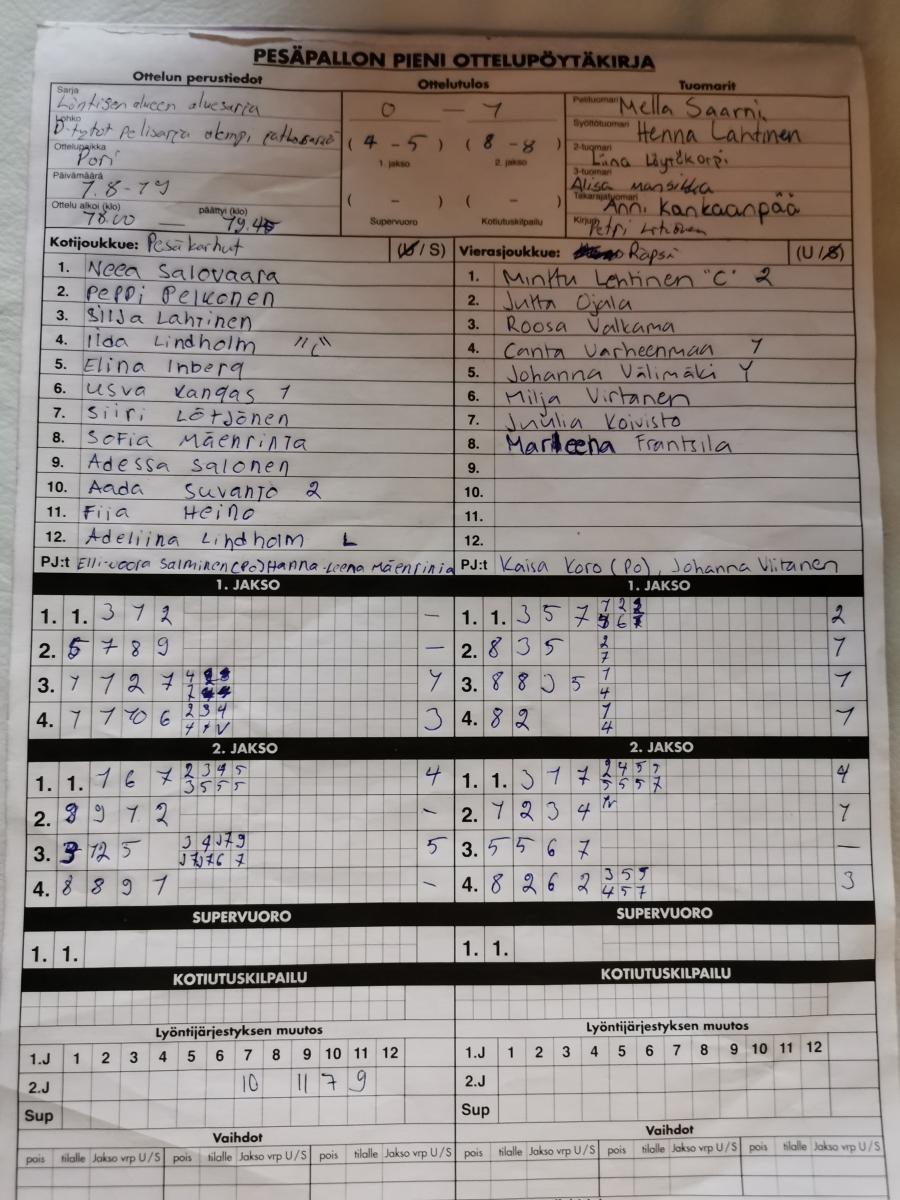 PESÄPALLON PIENI OTTELUPÖYTÄKIRJA
Ottelun perustiedot
Sarja
Läntisen alueen aluesarja
Lohko
D-tytöt pelisarja alempi jatkosarja
Ottelupaikka
Pori
Päivämäärä
1.8-19
Ottelu alkoi (klo) päättyi (klo)
18.00 — 19.45
Ottelutulos
0 — 1
( 4 - 5 ) ( 8 - 8 )
1. jakso 2. jakso
( - ) ( - )
Supervuoro Kotiutuskilpailu
Tuomarit
Pelituomari Mella Saarni
Syöttötuomari Henna Lahtinen
2-tuomari Liina Löytökorpi
3-tuomari
Alisa Mansikka
Takarajatuomari Anni Kankaanpää
Kirjuri Petri Lehtonen
Kotijoukkue: Pesäkarhut (U / S)
1. Neea Salovaara
2. Peppi Pelkonen
3. Silja Lahtinen
4. Iida Lindholm "C"
5. Elina Inberg
6. Usva Kangas 1
7. Siiri Lötjönen
8. Sofia Mäenrinta
9. Adessa Salonen
10. Aada Suvanto 2
11. Fiia Heino
12. Adeliina Lindholm L
PJ:t Elli-Noora Salminen (PO) Hanna-Leena Mäenrinta
Vierasjoukkue: Räpsä (U / S)
1. Minttu Lehtinen "C" 2
2. Jutta Ojala
3. Roosa Valkama
4. Canta Varheenmaa 1
5. Johanna Välimäki Y
6. Milja Virtanen
7. Juulia Koivisto
8. Marleena Frantsila
9.
10.
11.
12.
PJ:t Kaisa Koro (PO), Johanna Viitanen
1. JAKSO
1. 1. 3 1 2 —
2. 5 7 8 9 —
3. 1 1 2 7 1
4. 1 1 10 6 3
1. JAKSO
1. 1. 3 5 7 2
2. 8 3 5 2 1
7
3. 8 8 3 5 1 1
4
4. 8 2 1 1
4
2. JAKSO
1. 1. 1 6 7 2 3 4 5 4
3 5 5 5
2. 8 9 1 2 —
3. 3 12 5 5
4. 8 8 9 1 —
2. JAKSO
1. 1. 3 1 7 2 4 5 7 4
5 5 5 7
2. 1 2 3 4 1
3. 5 5 6 7 —
4. 8 2 6 2 3 5 5 3
4 5 7
SUPERVUORO
1. 1.
SUPERVUORO
1. 1.
KOTIUTUSKILPAILU
KOTIUTUSKILPAILU
Lyöntijärjestyksen muutos
1.J 1 2 3 4 5 6 7 8 9 10 11 12
2.J 10 11 7 9
Sup
Lyöntijärjestyksen muutos
1.J 1 2 3 4 5 6 7 8 9 10 11 12
2.J
Sup
Vaihdot
pois tilalle Jakso vrp U/S pois tilalle Jakso vrp U/S pois tilalle Jakso vrp U/S
Vaihdot
pois tilalle Jakso vrp U/S pois tilalle Jakso vrp U/S pois tilalle Jakso vrp U/S